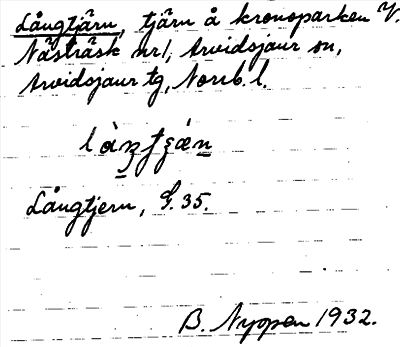 Långtjärn, tjärn å kronoparken V.
Nästräsk nr 1, Arvidsjaur sn,
Arvidsjaur tg, Norrb. l.
Långtjern, G. 35.
B. Nyppen 1932.